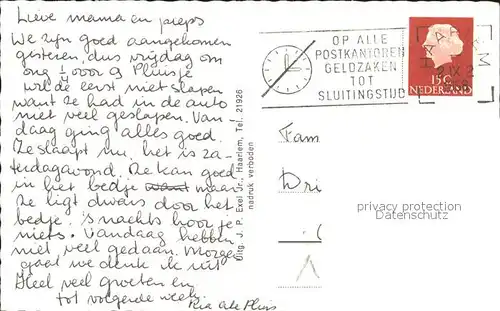 Lieve mama en pieps
We zijn goed aangekomen
gisteren, dus vrijdag om
ong ½ voor 9 Pluisje
wilde eerst niet slapen
want ze had in de auto
niet veel geslapen. Van-
daag ging alles goed.
Ze slaapt nu, het is za-
terdagavond. Ze kan goed
in het bedje maar
ze ligt dwars door het
bedje 's nachts hoor je
niets. Vandaag hebben
niet veel gedaan. Morgen
gaat we denk ik uit
Heel veel groeten en
tot volgende week.
Ria Pluis
Uitg. J. P. Exel Jr., Haarlem, Tel. 21926
nadruk verboden
OP ALLE
POSTKANTOREN
GELDZAKEN
TOT
SLUITINGSTIJD
HAARLEM
15c
NEDERLAND
Fam
Dri
Copyright protected
personal data